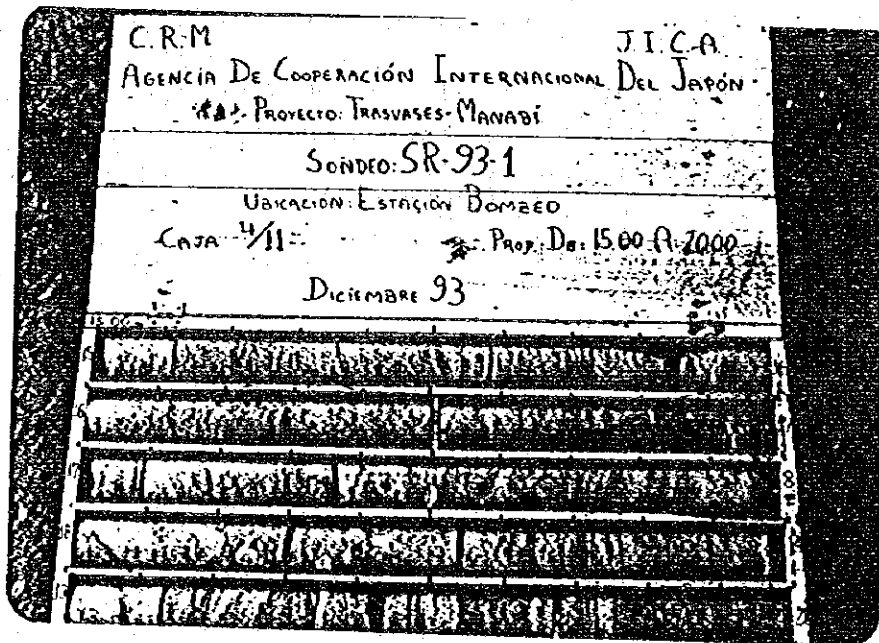 C.R.M J.I.C.A.
AGENCIA DE COOPERACIÓN INTERNACIONAL DEL JAPÓN
PROYECTO: TRASVASES-MANABÍ
SONDEO: SR-93-1
UBICACIÓN: ESTACIÓN BOMBEO
CAJA 4/11 PROF. DE: 15.00 A 20.00
DICIEMBRE 93
15.00
17